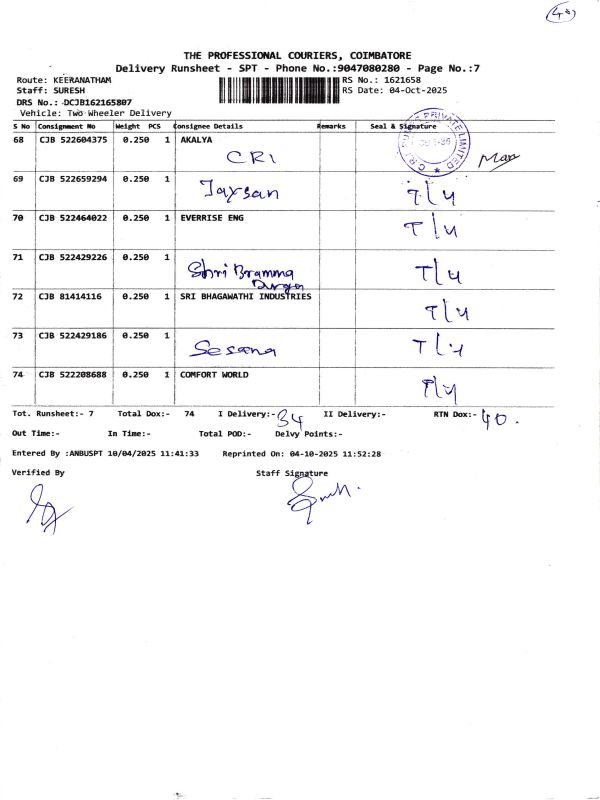 (40)
THE PROFESSIONAL COURIERS, COIMBATORE
Delivery Runsheet - SPT - Phone No.:9047080280 - Page No.:7
Route: KEERANATHAM RS No.: 1621658
Staff: SURESH RS Date: 04-Oct-2025
DRS No.: DCJB162165807
Vehicle: Two Wheeler Delivery
S No Consignment No Weight PCS Consignee Details Remarks Seal & Signature
68 CJB 522604375 0.250 1 AKALYA
CRI
69 CJB 522659294 0.250 1
Jaysan T/4
70 CJB 522464022 0.250 1 EVERRISE ENG
T/4
71 CJB 522429226 0.250 1
Shri Bramma Durga T/4
72 CJB 81414116 0.250 1 SRI BHAGAWATHI INDUSTRIES
T/4
73 CJB 522429186 0.250 1
Sesana T/4
74 CJB 522208688 0.250 1 COMFORT WORLD
T/4
Tot. Runsheet:- 7 Total Dox:- 74 I Delivery:- 34 II Delivery:- RTN Dox:- 40.
Out Time:- In Time:- Total POD:- Delvy Points:-
Entered By :ANBUSPT 10/04/2025 11:41:33 Reprinted On: 04-10-2025 11:52:28
Verified By Staff Signature